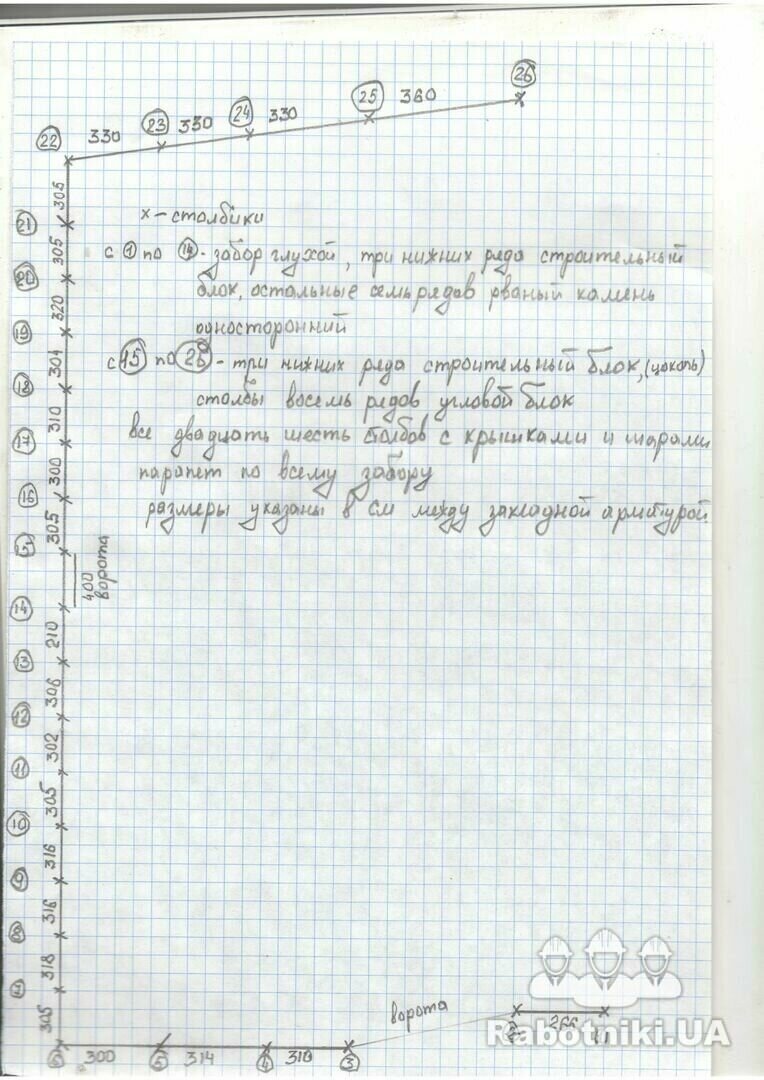 26
25
360
24
330
23
330
22
330
305
x - столбики
21
305
с 1 по 14 - забор глухой, три нижних ряда строительный
20
блок, остальные семь рядов рваный камень
320
19
односторонний
304
с 15 по 26 - три нижних ряда строительный блок, (цоколь)
18
столбы восемь рядов угловой блок
310
17
все двадцать шесть столбов с крышками и шарами
300
парапет по всему забору
16
305
размеры указаны в см между закладной арматурой.
15
400
ворота
14
210
13
306
12
302
11
305
10
316
9
316
8
318
7
305
6
300
5
314
4
310
3
ворота
2
266
1
Rabotniki.UA